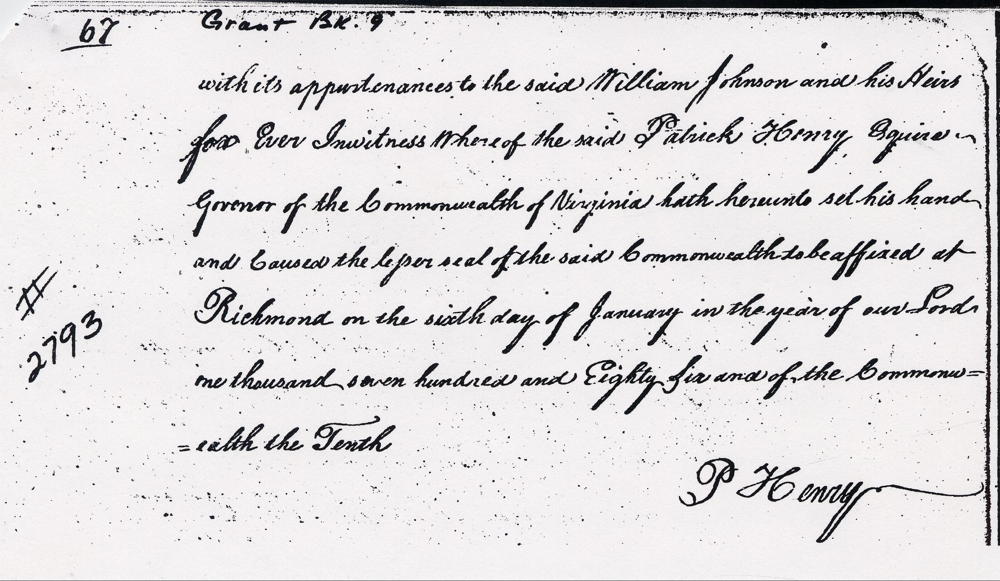 67 Grant Bk. 9
with its appurtenances to the said William Johnson and his Heirs
for Ever In witness Whereof the said Patrick Henry Esquire
Govenor of the Commonwealth of Virginia hath hereunto set his hand
and Caused the lesser seal of the said Commonwealth to be affixed at
Richmond on the sixth day of January in the year of our Lord
one thousand seven hundred and Eighty six and of the Commonw=
=ealth the Tenth
P Henry
# 2793